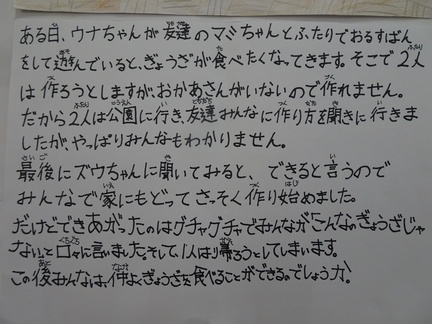 ある日、ウナちゃんが友達のマミちゃんとふたりでおるすばん
をして遊んでいると、ぎょうざが食べたくなってきます。そこで2人
は作ろうとしますが、おかあさんがいないので作れません。
だから2人は公園に行き、友達みんなに作り方を聞きに行きま
したが、やっぱりみんなもわかりません。
最後にズウちゃんに聞いてみると、できると言うので
みんなで家にもどってさっそく作り始めました。
だけどできあがったのはグチャグチャでみんなが「こんなのぎょうざじゃ
ない」と口々に言いました。そして、1人はり帰ろうとしてしまいます。
この後みんなは、仲よくぎょうざを食べることができるのでしょうか。